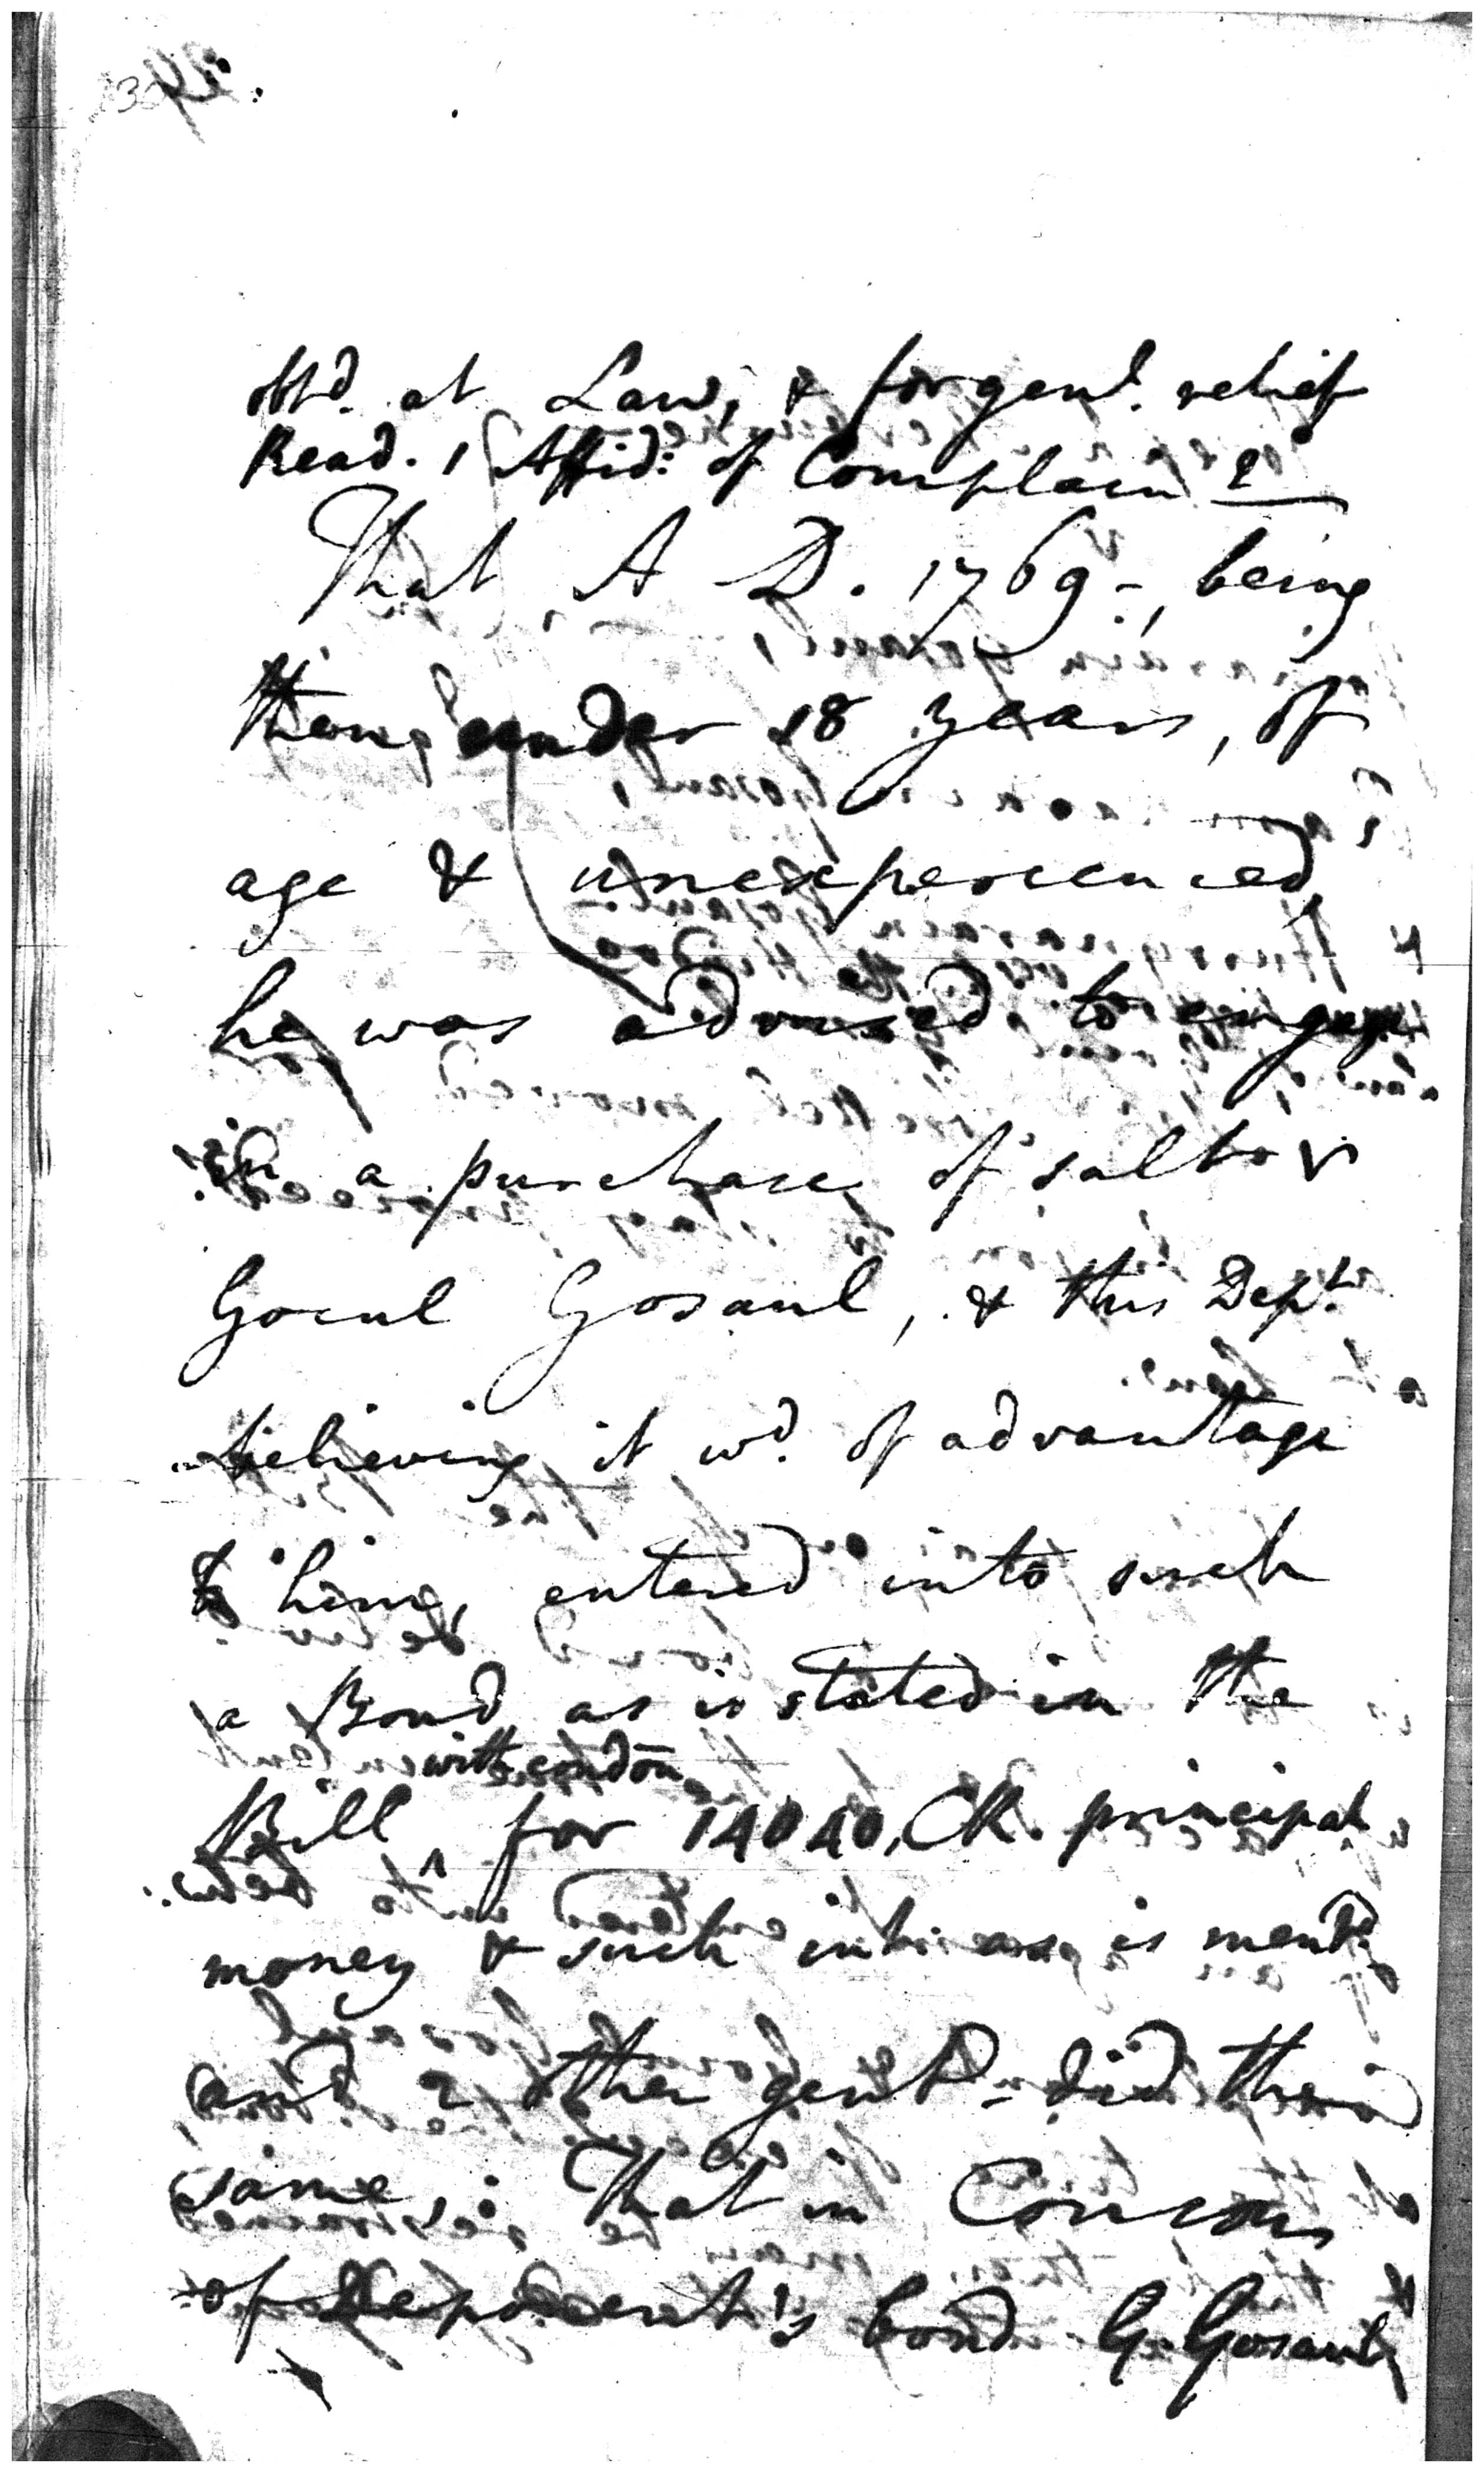 obtd. at Law, & for genl. relief
Read. 1 Affid: of Complain
That A D. 1769 -, being
then under 18 years, of
age & unexperienced
he was advised to engage
in a purchase of salt
Gocul Gosaul, & this Dept.
believing it wd. of advantage
to him, entered into such
a Bond as is stated in the
with condōn
Bill ^ for 14040, CR. principal
money & such int: as is mentd.
and 2 other gent did the
same,: That in Concōn
of Deponent's bond G. Gosaul